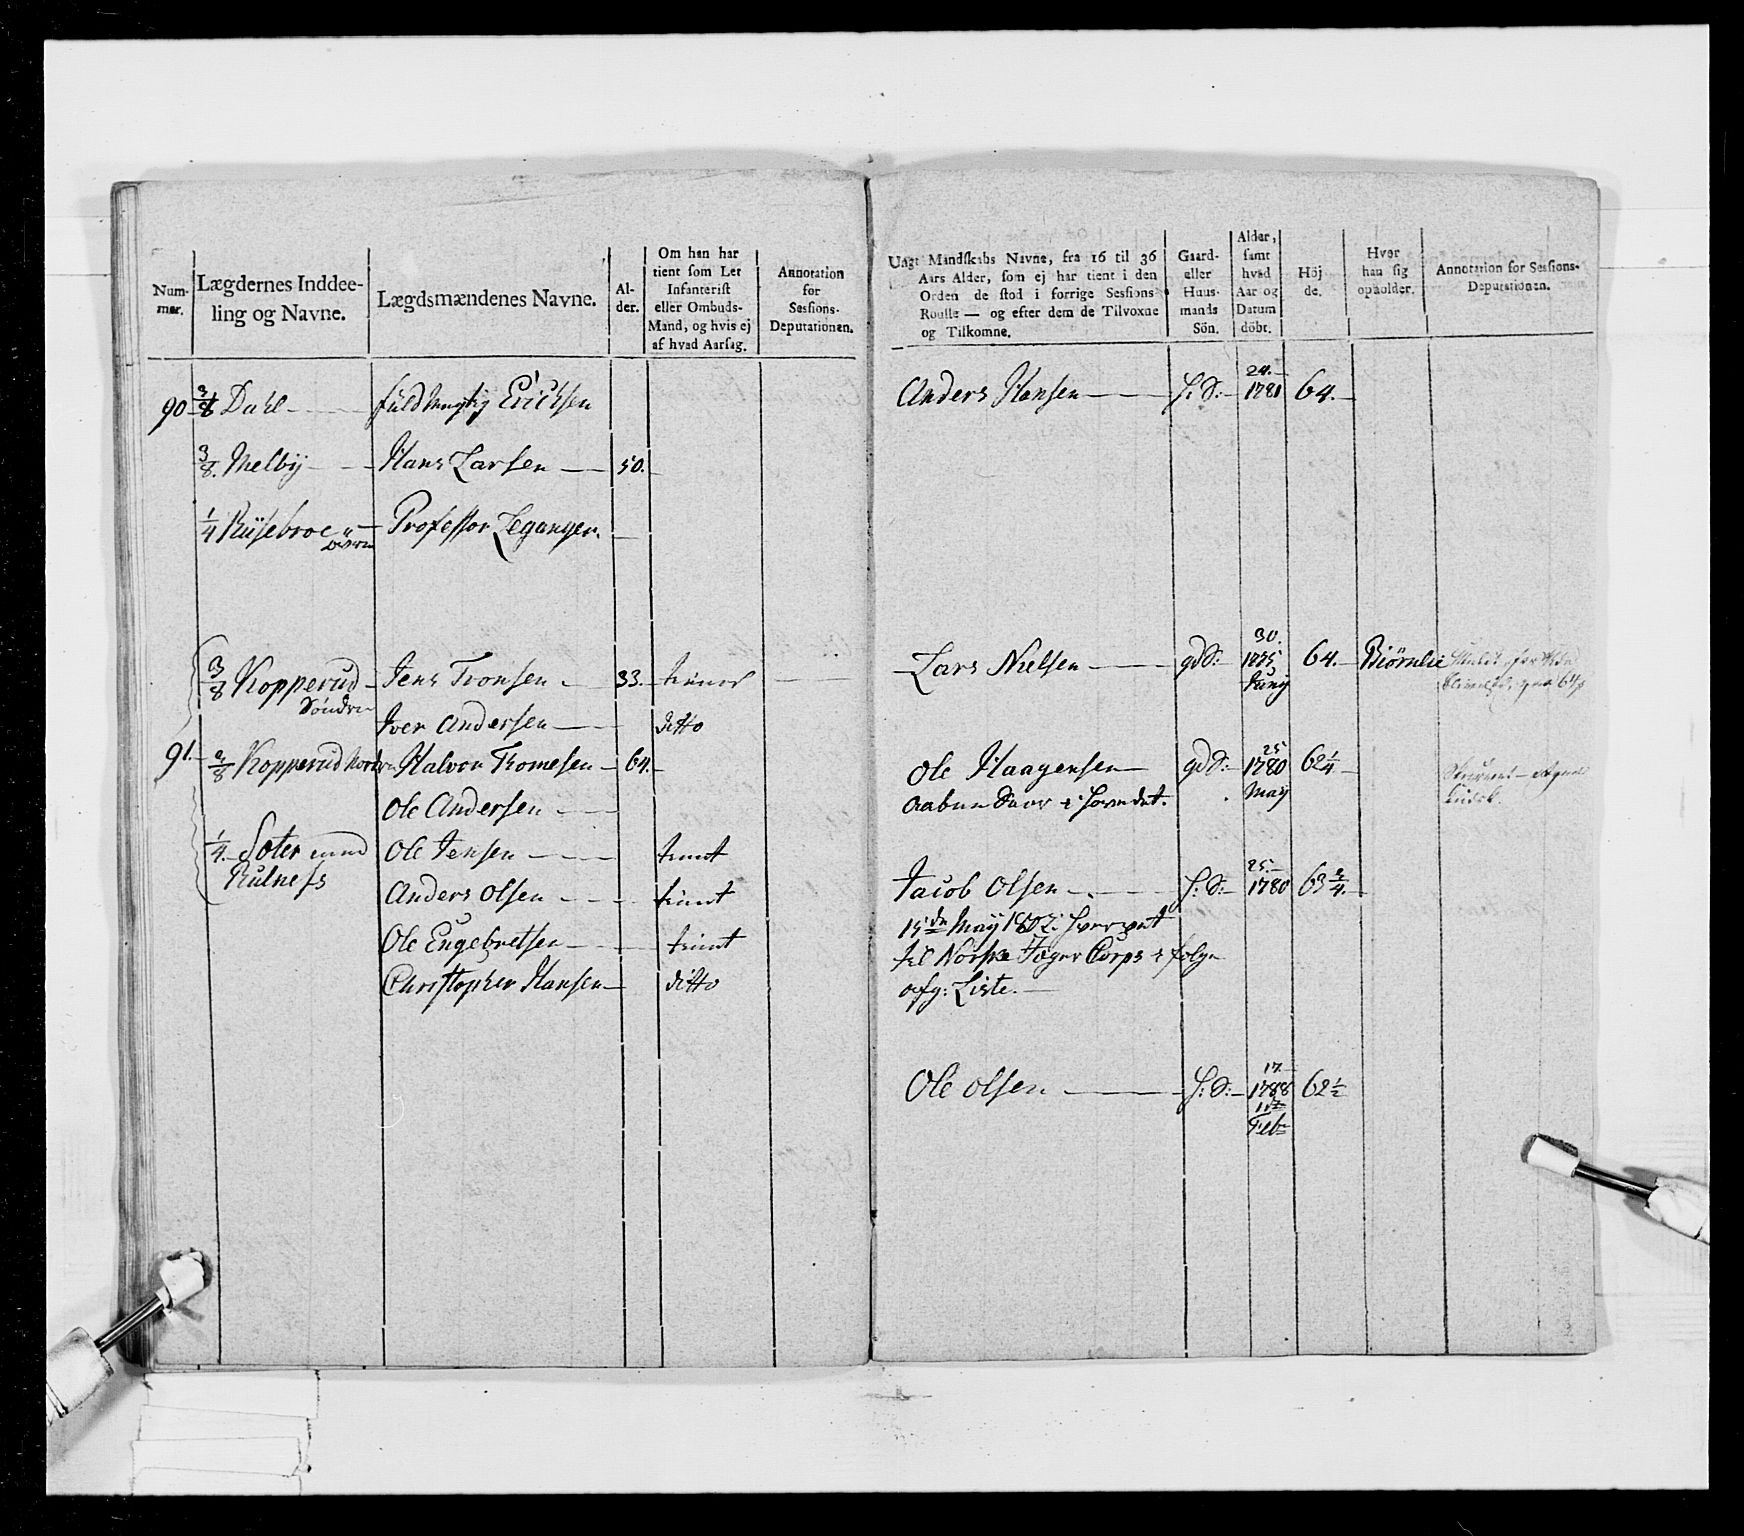 Num-
mer.
Lægdernes Inddee-
ling og Navne.
Lægdsmændenes Navne.
Al-
der.
Om han har
tient som Let
Infanterist
eller Ombuds-
Mand, og hvis ej
af hvad Aarsag.
Annotation
for
Sessions-
Deputationen.
90 3/8 Dahl fuldmegtig Erichsen
3/8. Melbÿ Hans Larsen 50.
1/4 Riisebroe Professor Leganger.
3/8 Kopperud Jens Tronsen 33.
Søndre
Iver Andersen ditto
91. 3/8 Kopperud Nordre Halvor Tromesen 64.
Ole Andersen
1/4. Soler med Ole Jensen tient
Rulnefs
Anders Olsen tient
Ole Engebretsen tient
Christopher Hansen ditto
Ungt Mandskabs Navne, fra 16 til 36
Aars Alder, som ej har tient i den
Orden de stod i forrige Sessions
Roulle — og efter dem de Tilvoxne
og Tilkomne.
Gaard-
eller
Huus-
mands
Sön.
Alder,
samt
hvad
Aar og
Datum
döbt.
Höj
de.
Hvor
han sig
opholder.
Annotation for Sessions-
Deputationen.
24.
Anders Hansen H: S: 1781 64.
30.
Lars Nielsen gd S: 1775 64. Biørnlie
Junÿ
25
Ole Haagensen gd S: 1780 62 1/4
May
25.
Jacob Olsen H: S: 1780 63 3/4.
15de Maÿ 1802
til Norske Jæger Corps i følge
afg: Liste.
17.
Ole Olsen H: S: 1788 62 1/2
11te
Febr